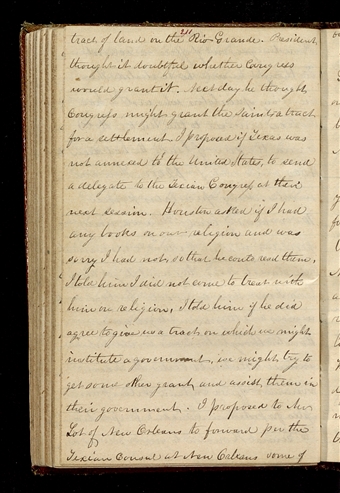 21
tract of land on the Rio Grande. President,
thought it doubtful whether Congress
would grant it. Next day he thought
Congress might grant the Saints a tract
for a settlement. I proposed if Texas was
not annexed to the United States, to send
a delegate to the Texian Congress at their
next session. Houston asked if I had
any books on our religion and was
sorry I had not, so that he could read them.
I told him I did not come to treat with
him on religion, I told him if he did
agree to give us a tract on which we might
institute a government, we might try to
get some other grant, and assist them in
their government. I proposed to Mr
Lot of New Orleans to forward per the
Texian Consul at New Orleans some of